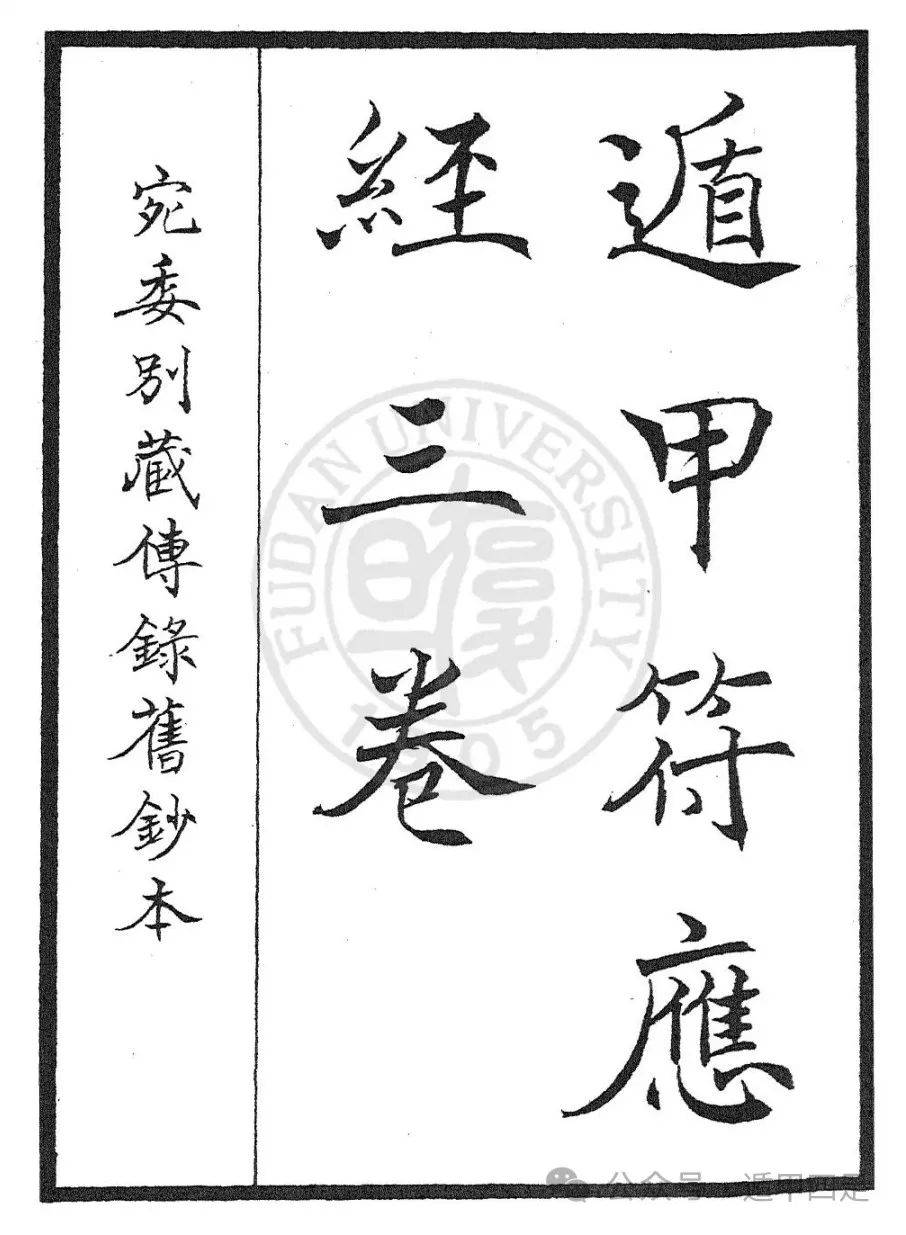 遁甲符應
經三卷
宛委別藏傳錄舊鈔本
FUDAN UNIVERSITY
1905
公众号 · 遁甲四足